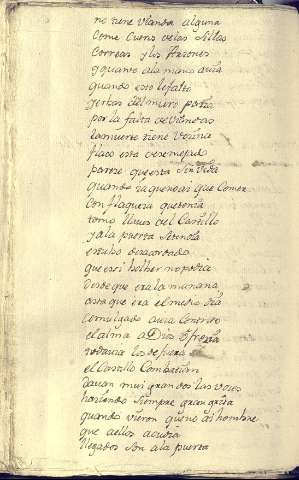 no tiene vianda alguna
Come Cueros de las Sillas
Correas y los Arzones
y quanto a la mano avia
quando esto le falto
yerbas del muro pazia
por la falta de viandas
la muerte tiene vezina
flaco esta desemejado
pareze que esta Sin vida
quando ya quen asi que Comer
Con flaqueza que tenia
tomo llaves del Castillo
y a la puerta Se
estubo desacordado
que en si bolber no podia
desde que era la mañana
asta que era el medio dia
Comulgado avia Contrito
el alma a Dios ofrezia
todavia los de fuera
el Castillo Combatian
davan mui grandes las voces
haziendo Siempre gran grita
quando vieron que no ai hombre
que a ellos acudia
llegados Son a la puerta